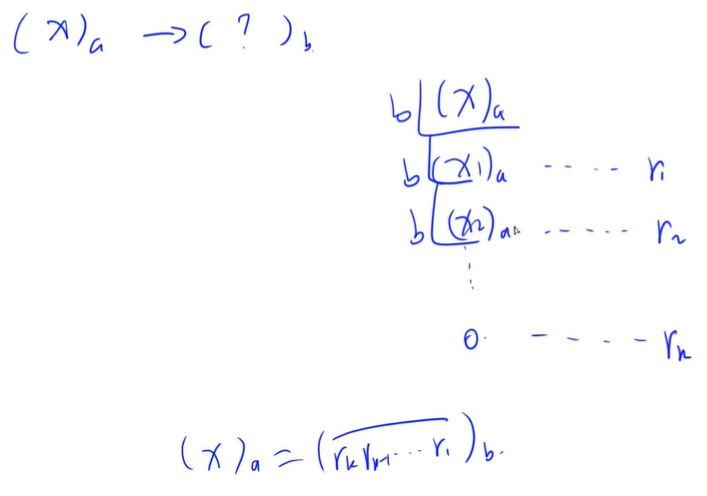 (x)a → ( ? )b
b (x)a
b (x1)a ······ r1
b (x2)a ······ r2
⋮
0 ····· rk
(x)a = (rk rk-1 ··· r1)b.